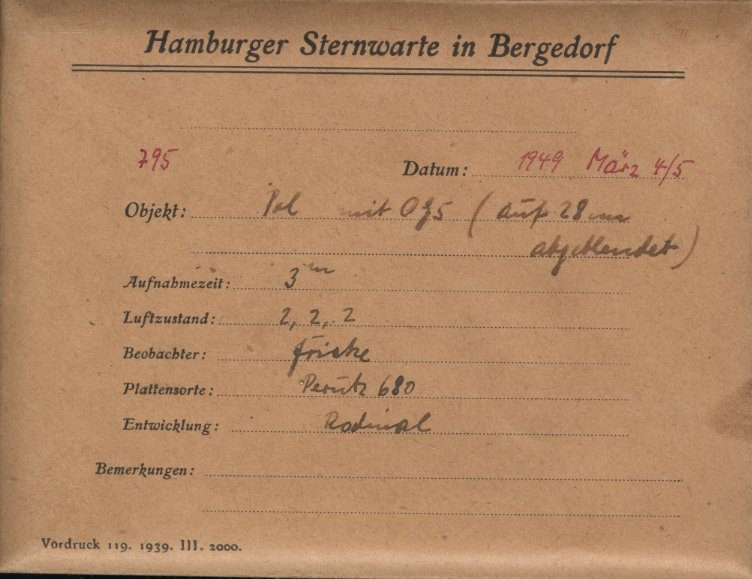 Hamburger Sternwarte in Bergedorf
795 Datum: 1949 März 4/5
Objekt: Pol mit OG5 (auf 28 cm
abgeblendet)
Aufnahmezeit: 3 m
Luftzustand: 2, 2, 2
Beobachter: Fricke
Plattensorte: Perutz 680
Entwicklung: Rodinal
Bemerkungen:
Vordruck 119. 1939. III. 2000.